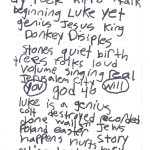 rock talk
beginning Luke yet
genius Jesus King
Donkey Disiples
stones quiet birth
trees rocks loud
volume singing real
Jerusalem city will
you god 40
luke is a genius
colt destroyed
stone walled recorded
Poland easter Jews
happens hurts story